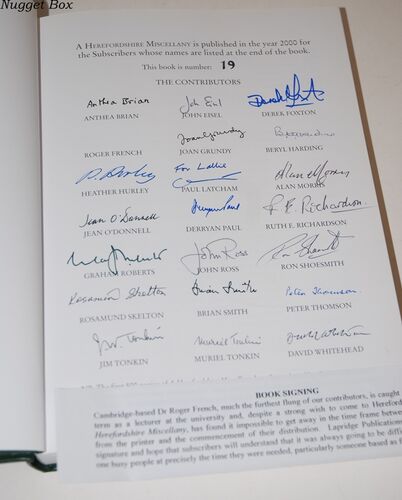 Nugget Box
A HEREFORDSHIRE MISCELLANY is published in the year 2000 for
the Subscribers whose names are listed at the end of the book.
This book is number: 19
THE CONTRIBUTORS
Anthea Brian John Eisel Derek Foxton
ANTHEA BRIAN JOHN EISEL DEREK FOXTON
Joan Grundy
ROGER FRENCH JOAN GRUNDY BERYL HARDING
P. Hurley For Lallie Alan Morris
HEATHER HURLEY PAUL LATCHAM ALAN MORRIS
Jean O'Donnell Derryan Paul R. E. Richardson
JEAN O'DONNELL DERRYAN PAUL RUTH E. RICHARDSON
John Ross Ron Shoesmith
GRAHAM ROBERTS JOHN ROSS RON SHOESMITH
Rosamund Skelton Brian Smith Peter Thomson
ROSAMUND SKELTON BRIAN SMITH PETER THOMSON
J.W. Tonkin Muriel Tonkin David Whitehead
JIM TONKIN MURIEL TONKIN DAVID WHITEHEAD
BOOK SIGNING
Cambridge-based Dr Roger French, much the furthest flung of our contributors, is caught
term as a lecturer at the university and, despite a strong wish to come to Hereford
Herefordshire Miscellany, has found it impossible to get away in the time frame between
from the printer and the commencement of their distribution. Lapridge Publications
signature and hope that subscribers will understand that it was always going to be difficult
busy people at precisely the time they were needed, particularly someone based as